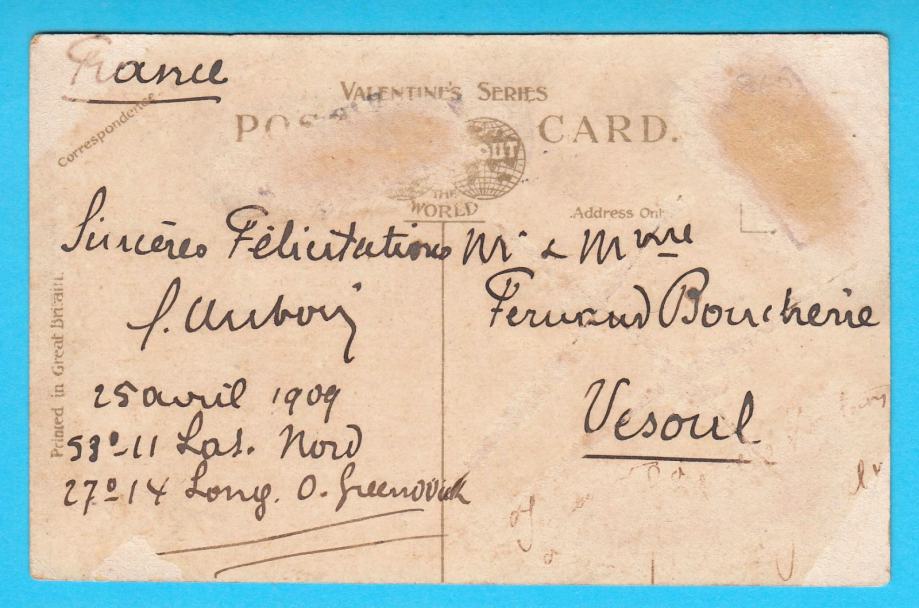 France
VALENTINE'S SERIES
POS CARD.
OUT
THE
WORLD
Correspondence
Address Onl
Printed in Great Britain.
Sincères Félicitations
25 avril 1909
53º-11 Lat. Nord
27º 14 Long. O. Greenwich
Mr & Mme
Fernand Boucherie
Vesoul